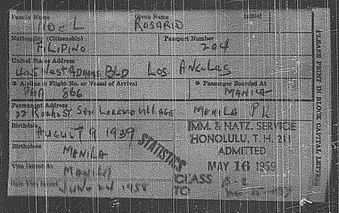 Family Name Given Name Initial
NOEL ROSARIO
Nationality (Citizenship) Passport Number
FILIPINO 204
United States Address
West ADAMS BLD LOS ANGELES
Airline & Flight No. or Vessel of Arrival Passenger Boarded At
PAA 866 MANILA
Permanent Address
San Lorenzo Village MANILA
Birthdate
AUGUST 9 1939
Birthplace
MANILA
Visa Issued At
MANILA
JUNE 1958
STATISTICS
IMM. & NATZ. SERVICE
HONOLULU, T. H. 31
ADMITTED
MAY 16 1959
CLASS
TO:
PLEASE PRINT IN BLOCK CAPITAL LETTERS